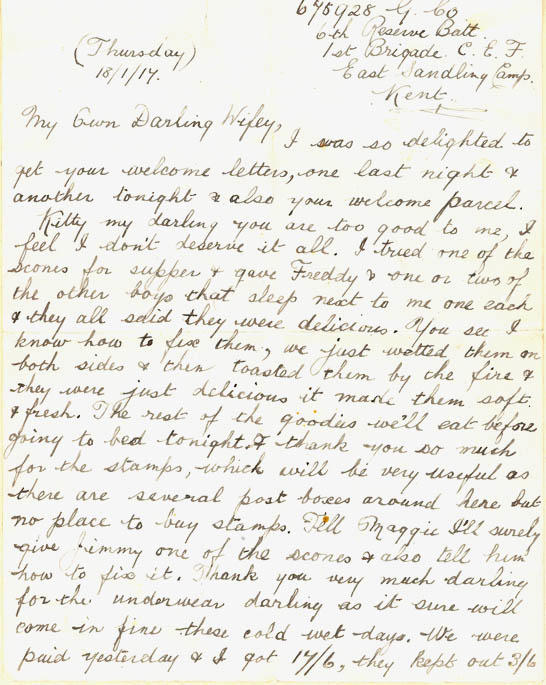 675928 G. Co
6th Reserve Batt.
1st Brigade C. E. F.
East Sandling Camp.
Kent.
(Thursday)
18/1/17.
My Own Darling Wifey,
I was so delighted to
get your welcome letters, one last night &
another tonight & also your welcome parcel.
Kitty my darling you are too good to me, I
feel I don't deserve it all. I tried one of the
scones for supper & gave Freddy & one or two of
the other boys that sleep next to me one each
& they all said they were delicious. You see I
know how to fix them, we just wetted them on
both sides & then toasted them by the fire &
they were just delicious it made them soft
& fresh. The rest of the goodies we'll eat before
going to bed tonight. I thank you so much
for the stamps, which will be very useful as
there are several post boxes around here but
no place to buy stamps. Tell Maggie I'll surely
give Jimmy one of the scones & also tell him
how to fix it. Thank you very much darling
for the underwear darling as it sure will
come in fine these cold wet days. We were
paid yesterday & I got 17/6, they kept out 3/6